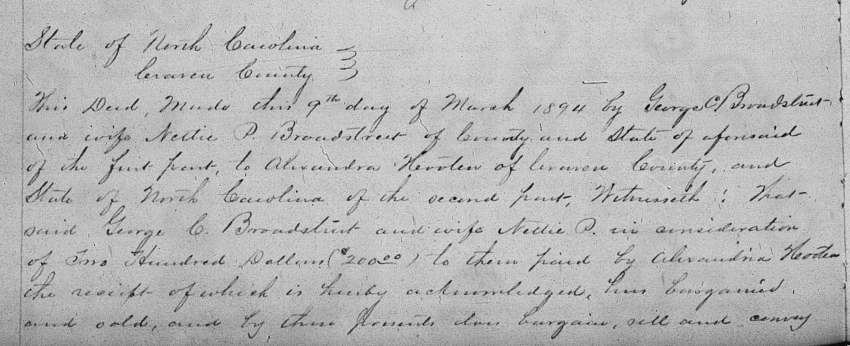 State of North Carolina
Craven County
This Deed, Made this 9th day of March 1894 by George C. Broadstreet
and wife Nellie P. Broadstreet of County and State of aforesaid
of the first part, to Alexandra Hooten of Craven County, and
State of North Carolina of the second part, Witnesseth: That
said George C. Broadstreet and wife Nellie P. in consideration
of Two Hundred Dollars ($200.00) to them paid by Alexandria Hooten
the receipt of which is hereby acknowledged, has bargained
and sold, and by these presents does bargain, sell and convey